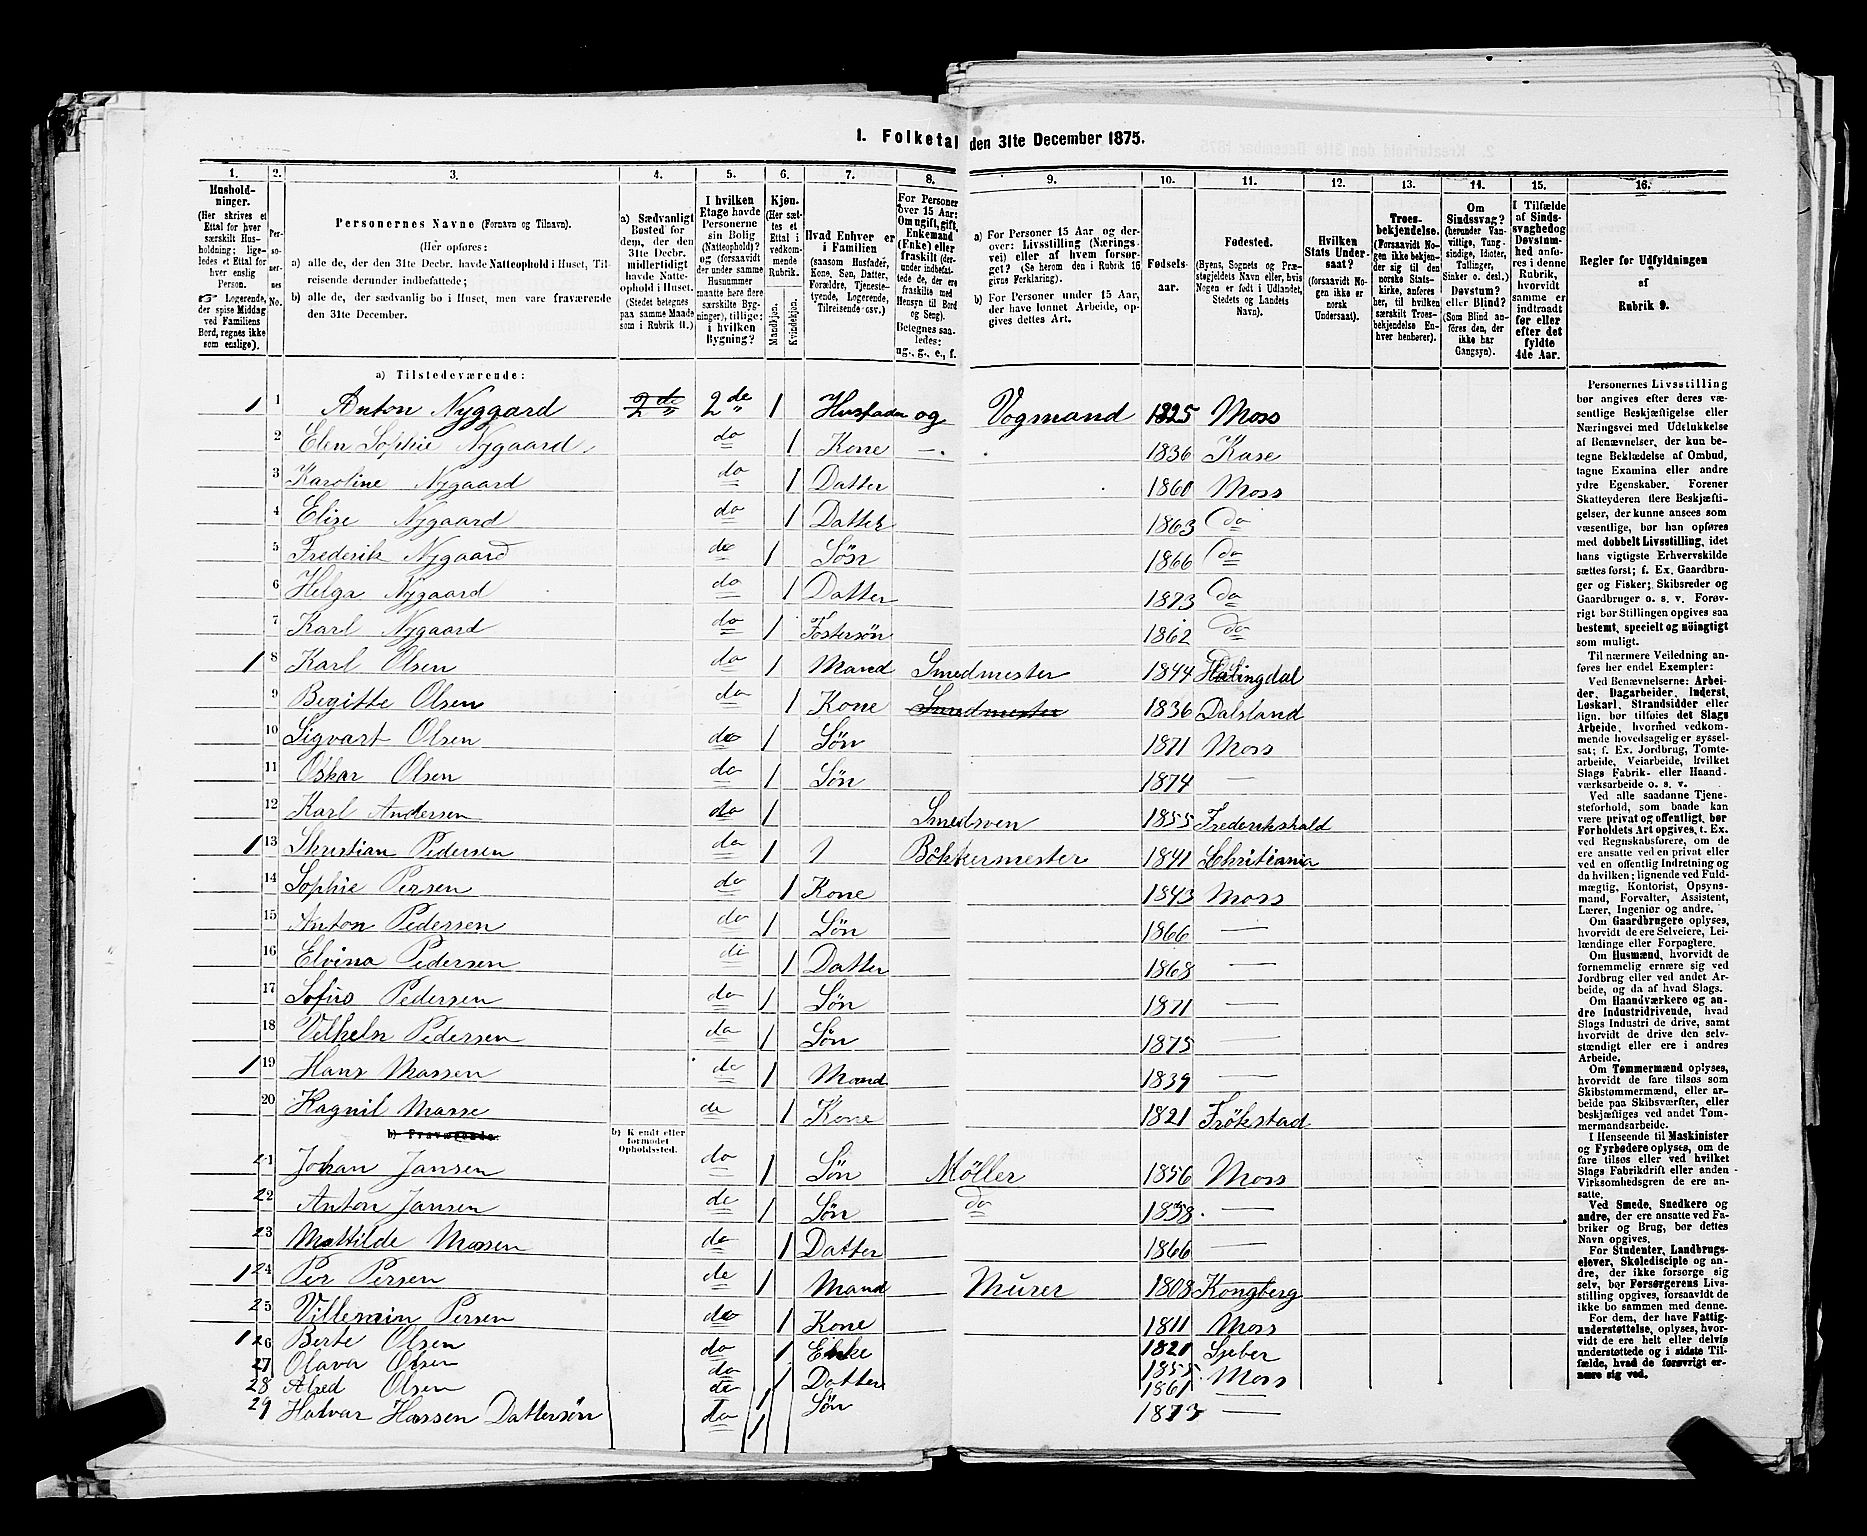 1. Folketal den 31te December 1875.
1. 2. 3. 4. 5. 6. 7. 8. 9. 10. 11. 12. 13. 14. 15. 16.
Hushold-
ninger.
(Her skrives et
Ettal for hver
særskilt Hus-
holdning; lige-
ledes et Ettal for
hver enslig
Person.
Logerende,
der spise Middag
ved Familiens
Bord, regnes ikke
som enslige).
Per-
so-
ner-
nes
No.
Personernes Navne (Fornavn og Tilnavn).
(Her opføres:
a) alle de, der den 31te Decbr. havde Natteophold i Huset, Til-
reisende derunder indbefattede;
b) alle de, der sædvanlig bo i Huset, men vare fraværende
den 31te December.
a) Sædvanligt
Bosted for
dem, der den
31te Decbr.
midlertidigt
havde Natte-
ophold i Huset.
(Stedet betegnes
paa samme Maade
som i Rubrik 11.)
I hvilken
Etage havde
Personerne
sin Bolig
(Natteophold)?
og (forsaavidt
der under samme
Husnummer
maatte høre flere
særskilte Byg-
ninger), tillige:
i hvilken
Bygning?
Kjøn.
(Her sæt-
tes et
Ettal i
vedkom-
mende
Rubrik.
Mandkjøn.
Kvindekjøn.
Hvad Enhver er
i Familien
(saasom Husfader,
Kone, Søn, Datter,
Forældre, Tjeneste-
tyende, Logerende,
Tilreisende osv.)
For Personer
over 15 Aar:
Om ugift, gift,
Enkemand
(Enke) eller
fraskilt (der-
under indbefat-
tede de, der ere
fraskilte med
Hensyn til Bord
og Seng).
Betegnes saa-
ledes:
ug., g., e., f.
a) For Personer 15 Aar og der-
over: Livsstilling (Nærings-
vei) eller af hvem forsør-
get? (Se herom den i Rubrik 16
givne Forklaring).
b) For Personer under 15 Aar,
der have lønnet Arbeide, op-
gives dettes Art.
Fødsels-
aar.
Fødested.
(Byens, Sognets og Præ-
stegjeldets Navn eller, hvis
Nogen er født i Udlandet,
Stedets og Landets
Navn).
Hvilken
Stats Under-
saat?
(forsaavidt No-
gen ikke er
norsk
Undersaat).
Troes-
bekjendelse.
(Forsaavidt No-
gen ikke bekjen-
der sig til den
norske Stats-
kirke, anføres
her, til hvilken
særskilt Troes-
bekjendelse En-
hver henhører).
Om
Sindssvag?
(herunder Van-
vittige, Tung-
sindige, Idioter,
Tullinger,
Sinker o. desl.)
Døvstum?
eller Blind?
(Som Blind an-
føres den, der
ikke har
Gangsyn).
I Tilfælde
af Sinds-
svaghed og
Døvstum-
hed anfø-
res i denne
Rubrik,
hvorvidt
samme er
indtraadt
før eller
efter det
fyldte
4de Aar.
Regler for Udfyldningen
af
Rubrik 9.
a) Tilstedeværende:
1 1 Anton Nyggard 2de " 2de " 1 Husfader og Vogmand 1825 Moss
2 Elen Sophie Nygaard do 1 Kone — 1836 Kase
3 Karoline Nygaard do 1 Datter 1860 Moss
4 Elise Nygaard do 1 Datter 1863 do
5 Frederik Nygaard do 1 Søn 1866 do
6 Helga Nygaard do 1 Datter 1873 do
7 Karl Nygaard do 1 Fostersøn 1862 do
1 8 Karl Olsen do 1 Mand Smedmester 1844 Halingdal
9 Begitte Olsen do 1 Kone Smedmester 1836 Dalsland
10 Sigvart Olsen do 1 Søn 1871 Moss
11 Oskar Olsen do 1 Søn 1874 —
12 Karl Andersen do 1 Smedsven 1855 Frederikshald
1 13 Khristian Pedersen do 1 1 Bökkermester 1841 Christiania
14 Sophie Persen do 1 Kone 1843 Moss
15 Anton Pedersen do 1 Søn 1866 —
16 Elvina Pedersen do 1 Datter 1868 —
17 Sofus Pedersen do 1 Søn 1871 —
18 Vilhelm Pedersen do 1 Søn 1875 —
1 19 Hans Massen do 1 Mand 1839 —
20 Ragnil Masse do 1 Kone 1821 Frökstad
b) Fraværende: b) Kjendt eller
formodet
Opholdssted.
21 Johan Jansen do 1 Søn Möller 1856 Moss
22 Anton Jansen do 1 Søn do 1858 —
23 Mattilde Massen do 1 Datter 1866 —
1 24 Per Persen do 1 Mand Murer 1808 Kongberg
25 Villemin Persen do 1 Kone 1811 Moss
1 26 Berte Olsen do 1 Enke 1821 Sjeber
27 Olava Olsen do 1 Datter 1855 Moss
28 Alred Olsen do 1 Søn 1861 —
29 Halvar Hassen Dattersøn do 1 1873
Personernes Livsstilling
bør angives efter deres væ-
sentlige Beskjæftigelse eller
Næringsvei med Udelukkelse
af Benævnelser, der kun be-
tegne Beklædelse af Ombud,
tagne Examina eller andre
ydre Egenskaber. Forener
Skatteyderen flere Beskjæfti-
gelser, der kunne ansees som
væsentlige, bør han opføres
med dobbelt Livsstilling, idet
hans vigtigste Erhvervskilde
sættes først; f. Ex. Gaardbru-
ger og Fisker; Skibsreder og
Gaardbruger o. s. v. Forøv-
rigt bør Stillingen opgives saa
bestemt, specielt og nöiagtigt
som muligt.
Til nærmere Veiledning an-
føres her endel Exempler:
Ved Benævnelserne: Arbei-
der, Dagarbeider, Inderst,
Løskarl, Strandsidder eller
lign. bør tilføies det Slags
Arbeide, hvormed vedkom-
mende hovedsagelig er syssel-
sat; f. Ex. Jordbrug, Tomte-
arbeide, Veiarbeide, hvilket
Slags Fabrik- eller Haand-
værksarbeide o. s. v.
Ved alle saadanne Tjene-
steforhold, som baade kan
være privat og offentligt, bør
Forholdets Art opgives, t. Ex.
ved Regnskabsførere, om de
ere ansatte ved en privat eller
ved en offentlig Indretning og
da hvilken; lignende ved Fuld-
mægtig, Kontorist, Opsyns-
mand, Forvalter, Assistent,
Lærer, Ingeniør og andre.
Om Gaardbrugere oplyses,
hvorvidt de ere Selveiere, Lei-
lændinge eller Forpagtere.
Om Husmænd, hvorvidt de
fornemmelig ernære sig ved
Jordbrug eller ved andet Ar-
beide, og da af hvad Slags.
Om Haandværkere og an-
dre Industridrivende, hvad
Slags Industri de drive, samt
hvorvidt de drive den selv-
stændigt eller ere i andres
Arbeide.
Om Tømmermænd oplyses,
hvorvidt de fare tilsøs som
Skibstømmermænd, eller ar-
beide paa Skibsværfter, eller
beskjæftiges ved andet Tøm-
mermandsarbeide.
I Henseende til Maskinister
og Fyrbødere oplyses, om de
fare tilsøs eller ved hvilket
Slags Fabrikdrift eller anden
Virksomhedsgren de ere an-
satte.
Ved Smede, Snedkere og
andre, der ere ansatte ved Fa-
briker og Brug, bør dettes
Navn opgives.
For Studenter, Landbrugs-
elever, Skoledisciple og an-
dre, der ikke forsørge sig
selv, bør Forsørgerens Livs-
stilling opgives, forsaavidt de
ikke bo sammen med denne.
For dem, der have Fattig-
understøttelse, oplyses, hvor-
vidt de ere helt eller delvis
understøttede og i sidste Til-
fælde, hvad de forøvrigt er-
nære sig ved.